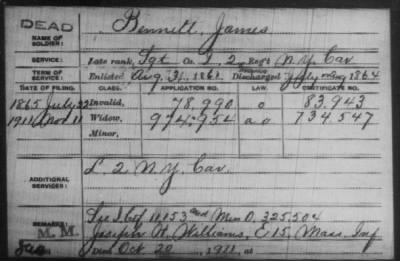 DEAD
NAME OF SOLDIER: Bennett, James
SERVICE: Late rank, Sgt Co. I, 2 Reg't N.Y. Cav
TERM OF SERVICE: Enlisted Aug. 31, 1861 Discharged July or Aug 1864
DATE OF FILING. CLASS. APPLICATION NO. LAW. CERTIFICATE NO.
1865 July 22 Invalid, 78,990 o 83,943
1911 Nov 11 Widow, 974,954 a o 734,547
Minor,
L. 2 N.Y. Cav.
ADDITIONAL SERVICES:
11,153 and Min O. 325,504
REMARKS: Joseph H. Williams, E 15, Mass. Inf
M.M. Died Oct 20, 1911, at